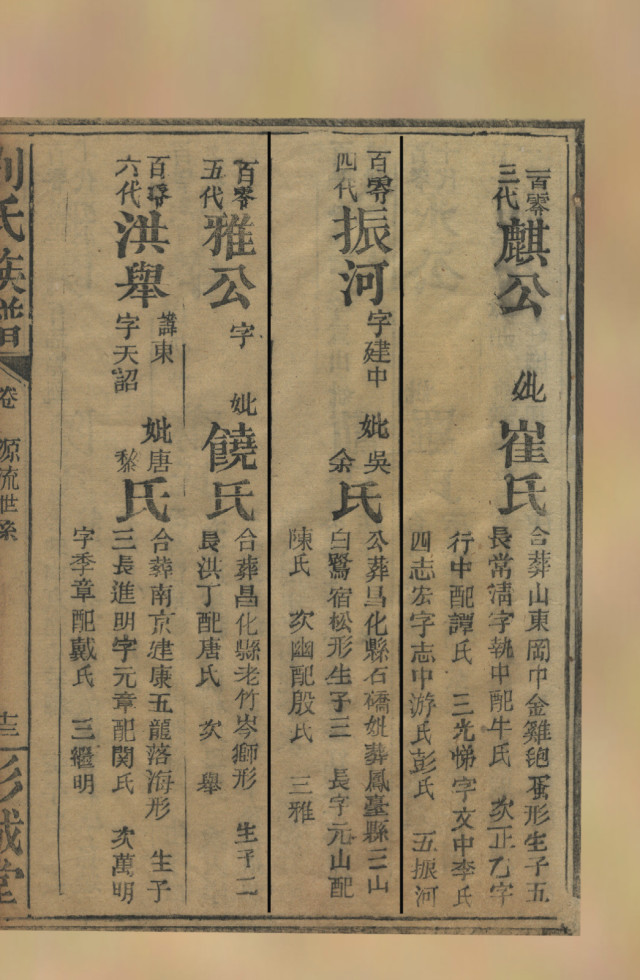 百零
三代
麒公
妣
崔氏
合葬山東岡中金雞抱蛋形生子五
長常清字執中配牛氏 次正乙字
行中配譚氏 三光悌字文中李氏
四志宏字志中游氏彭氏 五振河
百零
四代
振河
字建中
妣吳
余
氏
公葬昌化縣石礄妣葬鳳臺縣三山
白鷺宿松形生子三 長字元山配
陳氏 次幽配殷氏 三雅
百零
五代
雅公
字
妣
饒氏
合葬昌化縣老竹岑獅形 生子二
長洪丁配唐氏 次舉
百零
六代
洪舉
諱東
字天詔
妣唐
黎
氏
合葬南京建康五龍落海形 生子
三長進明字元章配関氏 次萬明
字季章配戴氏 三繼明
劉氏族譜
卷
源流世系
十三
彭城堂